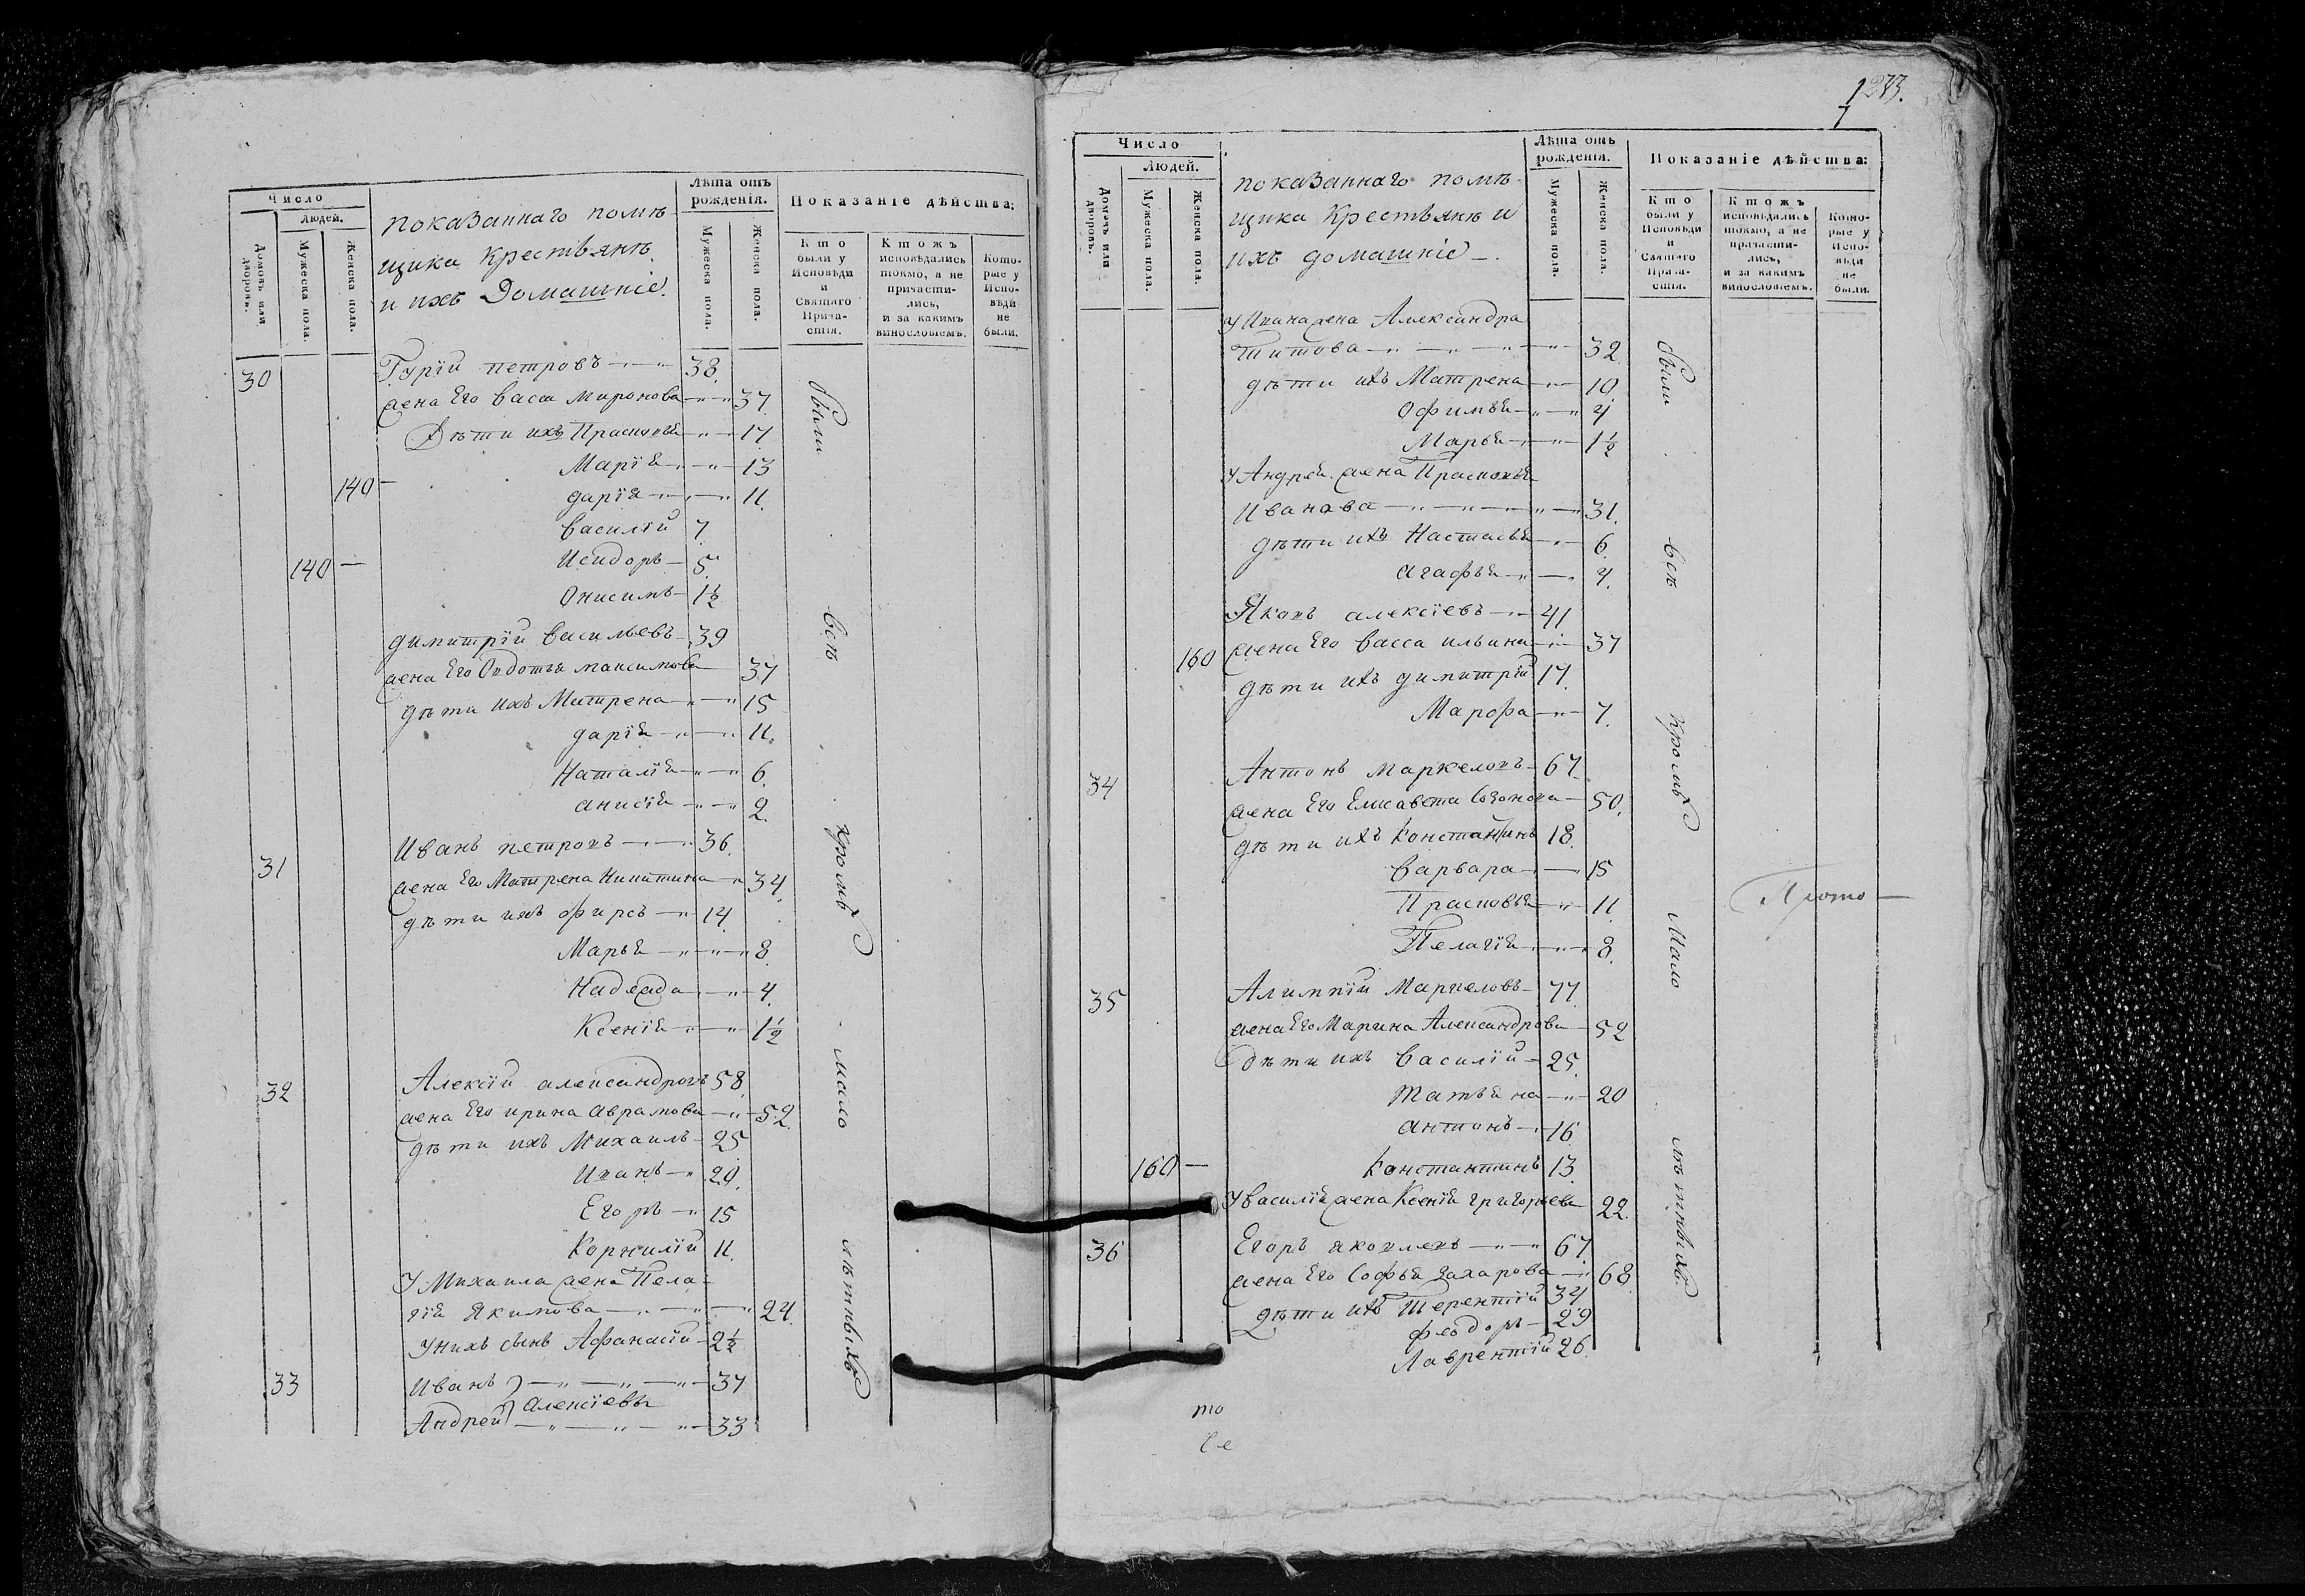 Число
Людей.
Домовъ или дворовъ.
Мужеска пола.
Женска пола.
показаннаго помѣ-
щика Крестьянѣ
и ихъ Домашніе.
Лѣта отъ рожденія.
Мужеска пола.
Женска пола.
Показаніе дѣйства:
Кто были у Исповѣди и Святаго Прича-стія.
Ктожъ исповѣдались токмо, а не причасти-лись, и за какимъ винословіемъ.
Кото-рые у Испо-вѣди не были.
30 Гурій петровъ 38.
жена Его васса миронова 37
Дѣти ихъ Прасковья 17
Марія 13
140 дарія 11.
василій 7.
140 Исидоръ 5.
Онисимъ 1½
димитрій васильевъ 39
жена Его Овдотья максимова 37
дѣти ихъ Матрена 15
дарія 11.
Наталія 6.
анисія 2.
31 Иванъ петровъ 36.
жена Его Матрена Никитина 34.
дѣти ихъ фирсъ 14.
Марья 8.
Надежда 4.
Ксенія 1½
32 Алексій александровъ 58.
жена Его ирина аврамова 52.
дѣти ихъ Михаилъ 25
Иванъ 20.
Егоръ 15
Корнилій 11.
У Михаила жена Пела-
гія Якимова 24.
У нихъ сынъ Афанасій 2½
33 Иванъ 37
Алексіевы
Андрей 33
были всѣ кромѣ мало лѣтныхъ
1273.
7
Число
Людей.
Домовъ или дворовъ.
Мужеска пола.
Женска пола.
показаннаго помѣ-
щика Крестьянѣ и
ихъ домашніе.
Лѣта отъ рожденія.
Мужеска пола.
Женска пола.
Показаніе дѣйства:
Кто были у Исповѣди и Святаго Прича-стія.
Ктожъ исповѣдались токмо, а не причасти-лись, и за какимъ винословіемъ.
Кото-рые у Испо-вѣди не были.
У Ивана жена Александра
Титова 32.
дѣти ихъ Матрена 10.
Офимья 4
Марья 1½
У Андрея жена Прасковья
Иванова 31.
дѣти ихъ Настасья 6.
агафья 4.
Яковъ алексіевъ 41
жена Его васса ильина 37
160 дѣти ихъ димитрій 17.
Марфа 7.
34 Антонъ маркеловъ 67.
жена Его Елисавета Созонова 50.
дѣти ихъ Константинъ 18.
варвара 15
Прасковья 11.
Пелагія 8.
35 Алимпій Маркеловъ 77
жена Его Марина Александрова 52
дѣти ихъ василій 25.
татьяна 20
антонъ 16.
160 Константинъ 13.
У василія жена Ксенія григорьева 22.
36 Егоръ яковлевъ 67
жена Его Софья Захарова 68.
дѣти ихъ терентій 34
феодоръ 29
Лаврентій 26.
были всѣ кромѣ мало лѣтныхъ
Прото
то